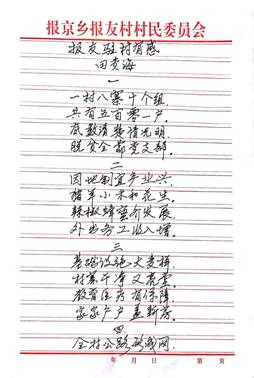 报京乡报友村村民委员会
报友驻村有感
田茂海
一
一村八寨十个组，
共有五百零一户。
底数清楚情况明，
脱贫全靠党支部。
二
因地制宜产业兴，
猪羊小米和花生。
辣椒蜂蜜齐发展，
外出务工收入增。
三
基础设施大变样，
村寨干净又亮堂。
教育医疗有保障，
家家户户盖新房。
四
全村公路形成网，
年 月 日 第 页